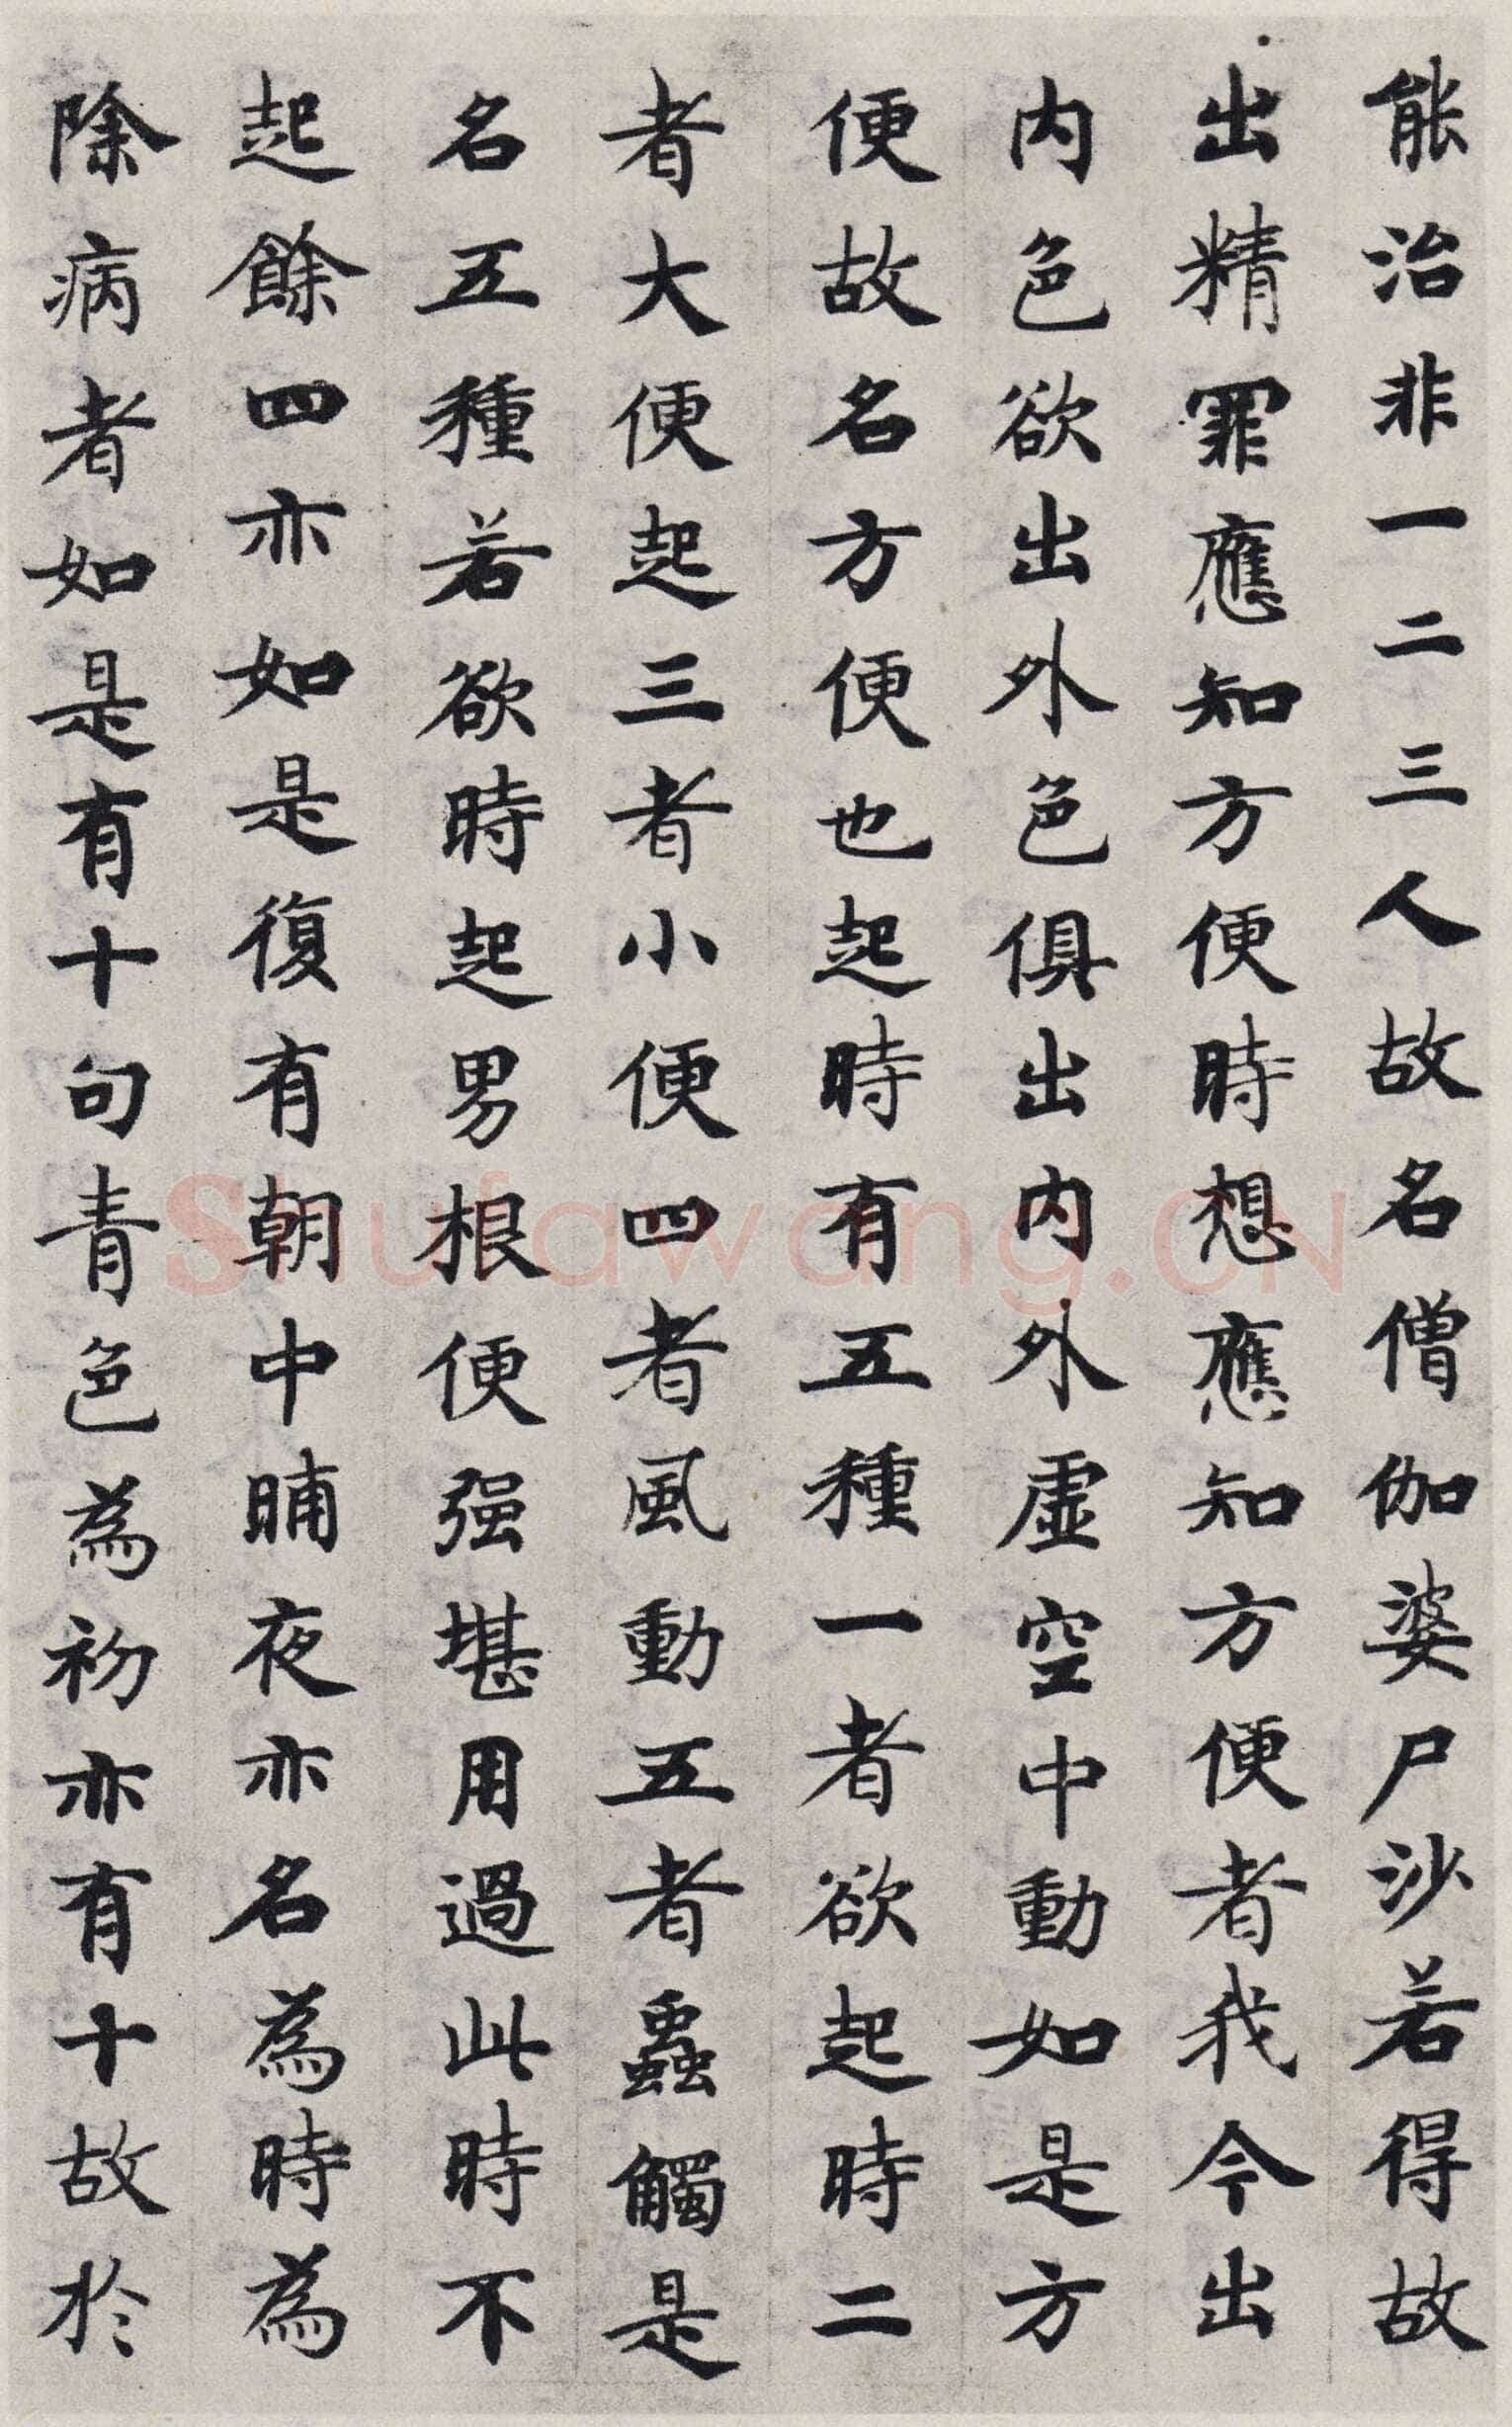 能治非一二三人故名僧伽婆尸沙若得故
出精罪應知方便時想應知方便者我今出
内色欲出外色俱出内外虛空中動如是方
便故名方便也起時有五種一者欲起時二
者大便起三者小便四者風動五者蟲觸是
名五種若欲時起男根便强堪用過此時不
起餘四亦如是復有朝中晡夜亦名為時為
除病者如是有十句青色為初亦有十故於
Shufawang.CN